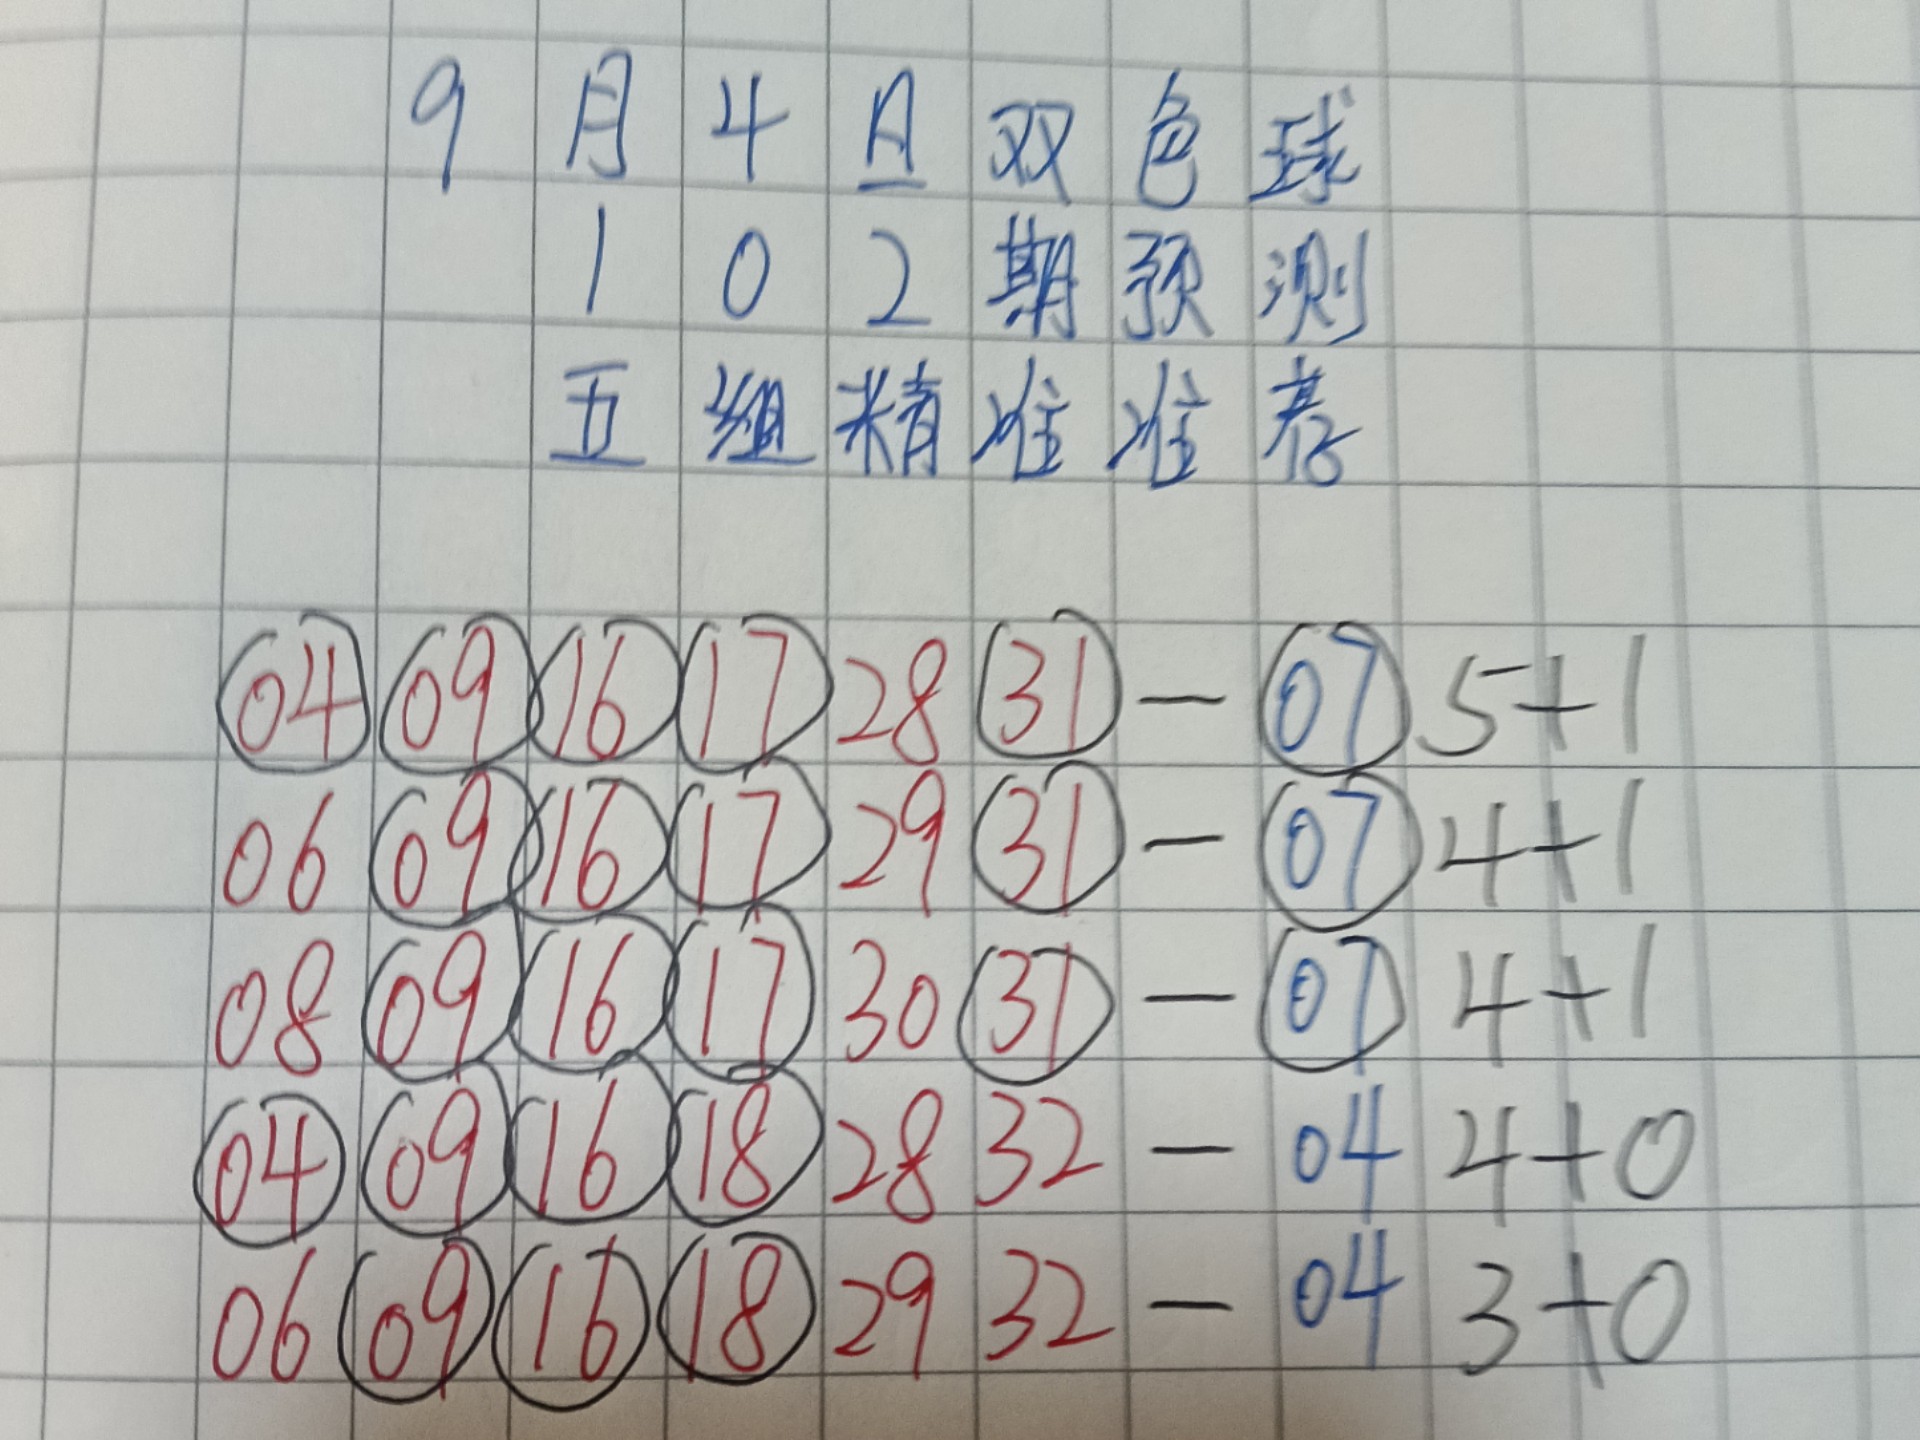 9月4日双色球
102期预测
五组精准准卷
04 09 16 17 28 31 — 07 5+1
06 09 16 17 29 31 — 07 4+1
08 09 16 17 30 31 — 07 4+1
04 09 16 18 28 32 — 04 4+0
06 09 16 18 29 32 — 04 3+0